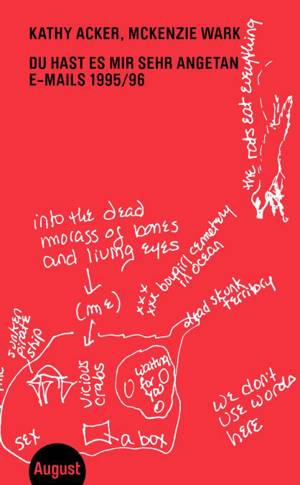 KATHY ACKER, MCKENZIE WARK
DU HAST ES MIR SEHR ANGETAN
E-MAILS 1995/96
the rats eat everything
into the dead
morass of bones
and living eyes
(ME)
xxx
xxx bougin cemetery
in ocean
dead skunk
territory
sunken
pirate
ship
vicious
crabs
waiting
for
you
we don't
use words
here
sex
a box
August